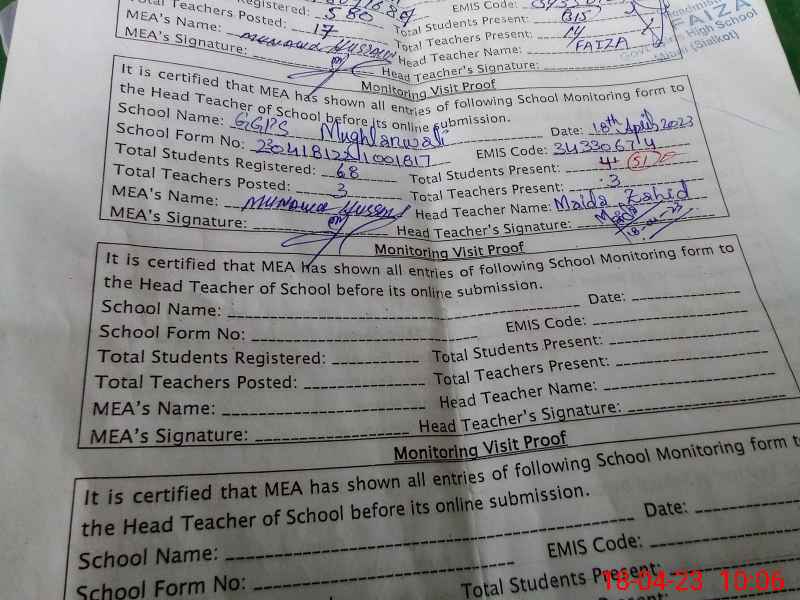 Registered: 580 EMIS Code:
Teachers Posted: 17 Total Students Present: 515
MEA's Name: Munawar Hussain Total Teachers Present: 14
MEA's Signature: Head Teacher Name: FAIZA
Head Teacher's Signature:
FAIZA
High School
(Sialkot)
Monitoring Visit Proof
It is certified that MEA has shown all entries of following School Monitoring form to
the Head Teacher of School before its online submission.
School Name: GGPS Mughlanwali Date: 18th April, 2023
School Form No: EMIS Code:
Total Students Registered: 68 Total Students Present:
Total Teachers Posted: 3 Total Teachers Present: 3
MEA's Name: Munawar Hussain Head Teacher Name: Maida Zahid
MEA's Signature: Head Teacher's Signature:
18-04-23
Monitoring Visit Proof
It is certified that MEA has shown all entries of following School Monitoring form to
the Head Teacher of School before its online submission.
School Name: Date:
School Form No: EMIS Code:
Total Students Registered: Total Students Present:
Total Teachers Posted: Total Teachers Present:
MEA's Name: Head Teacher Name:
MEA's Signature: Head Teacher's Signature:
Monitoring Visit Proof
It is certified that MEA has shown all entries of following School Monitoring form to
the Head Teacher of School before its online submission.
School Name: Date:
School Form No: EMIS Code:
Total Students Present:
18-04-23 10:06